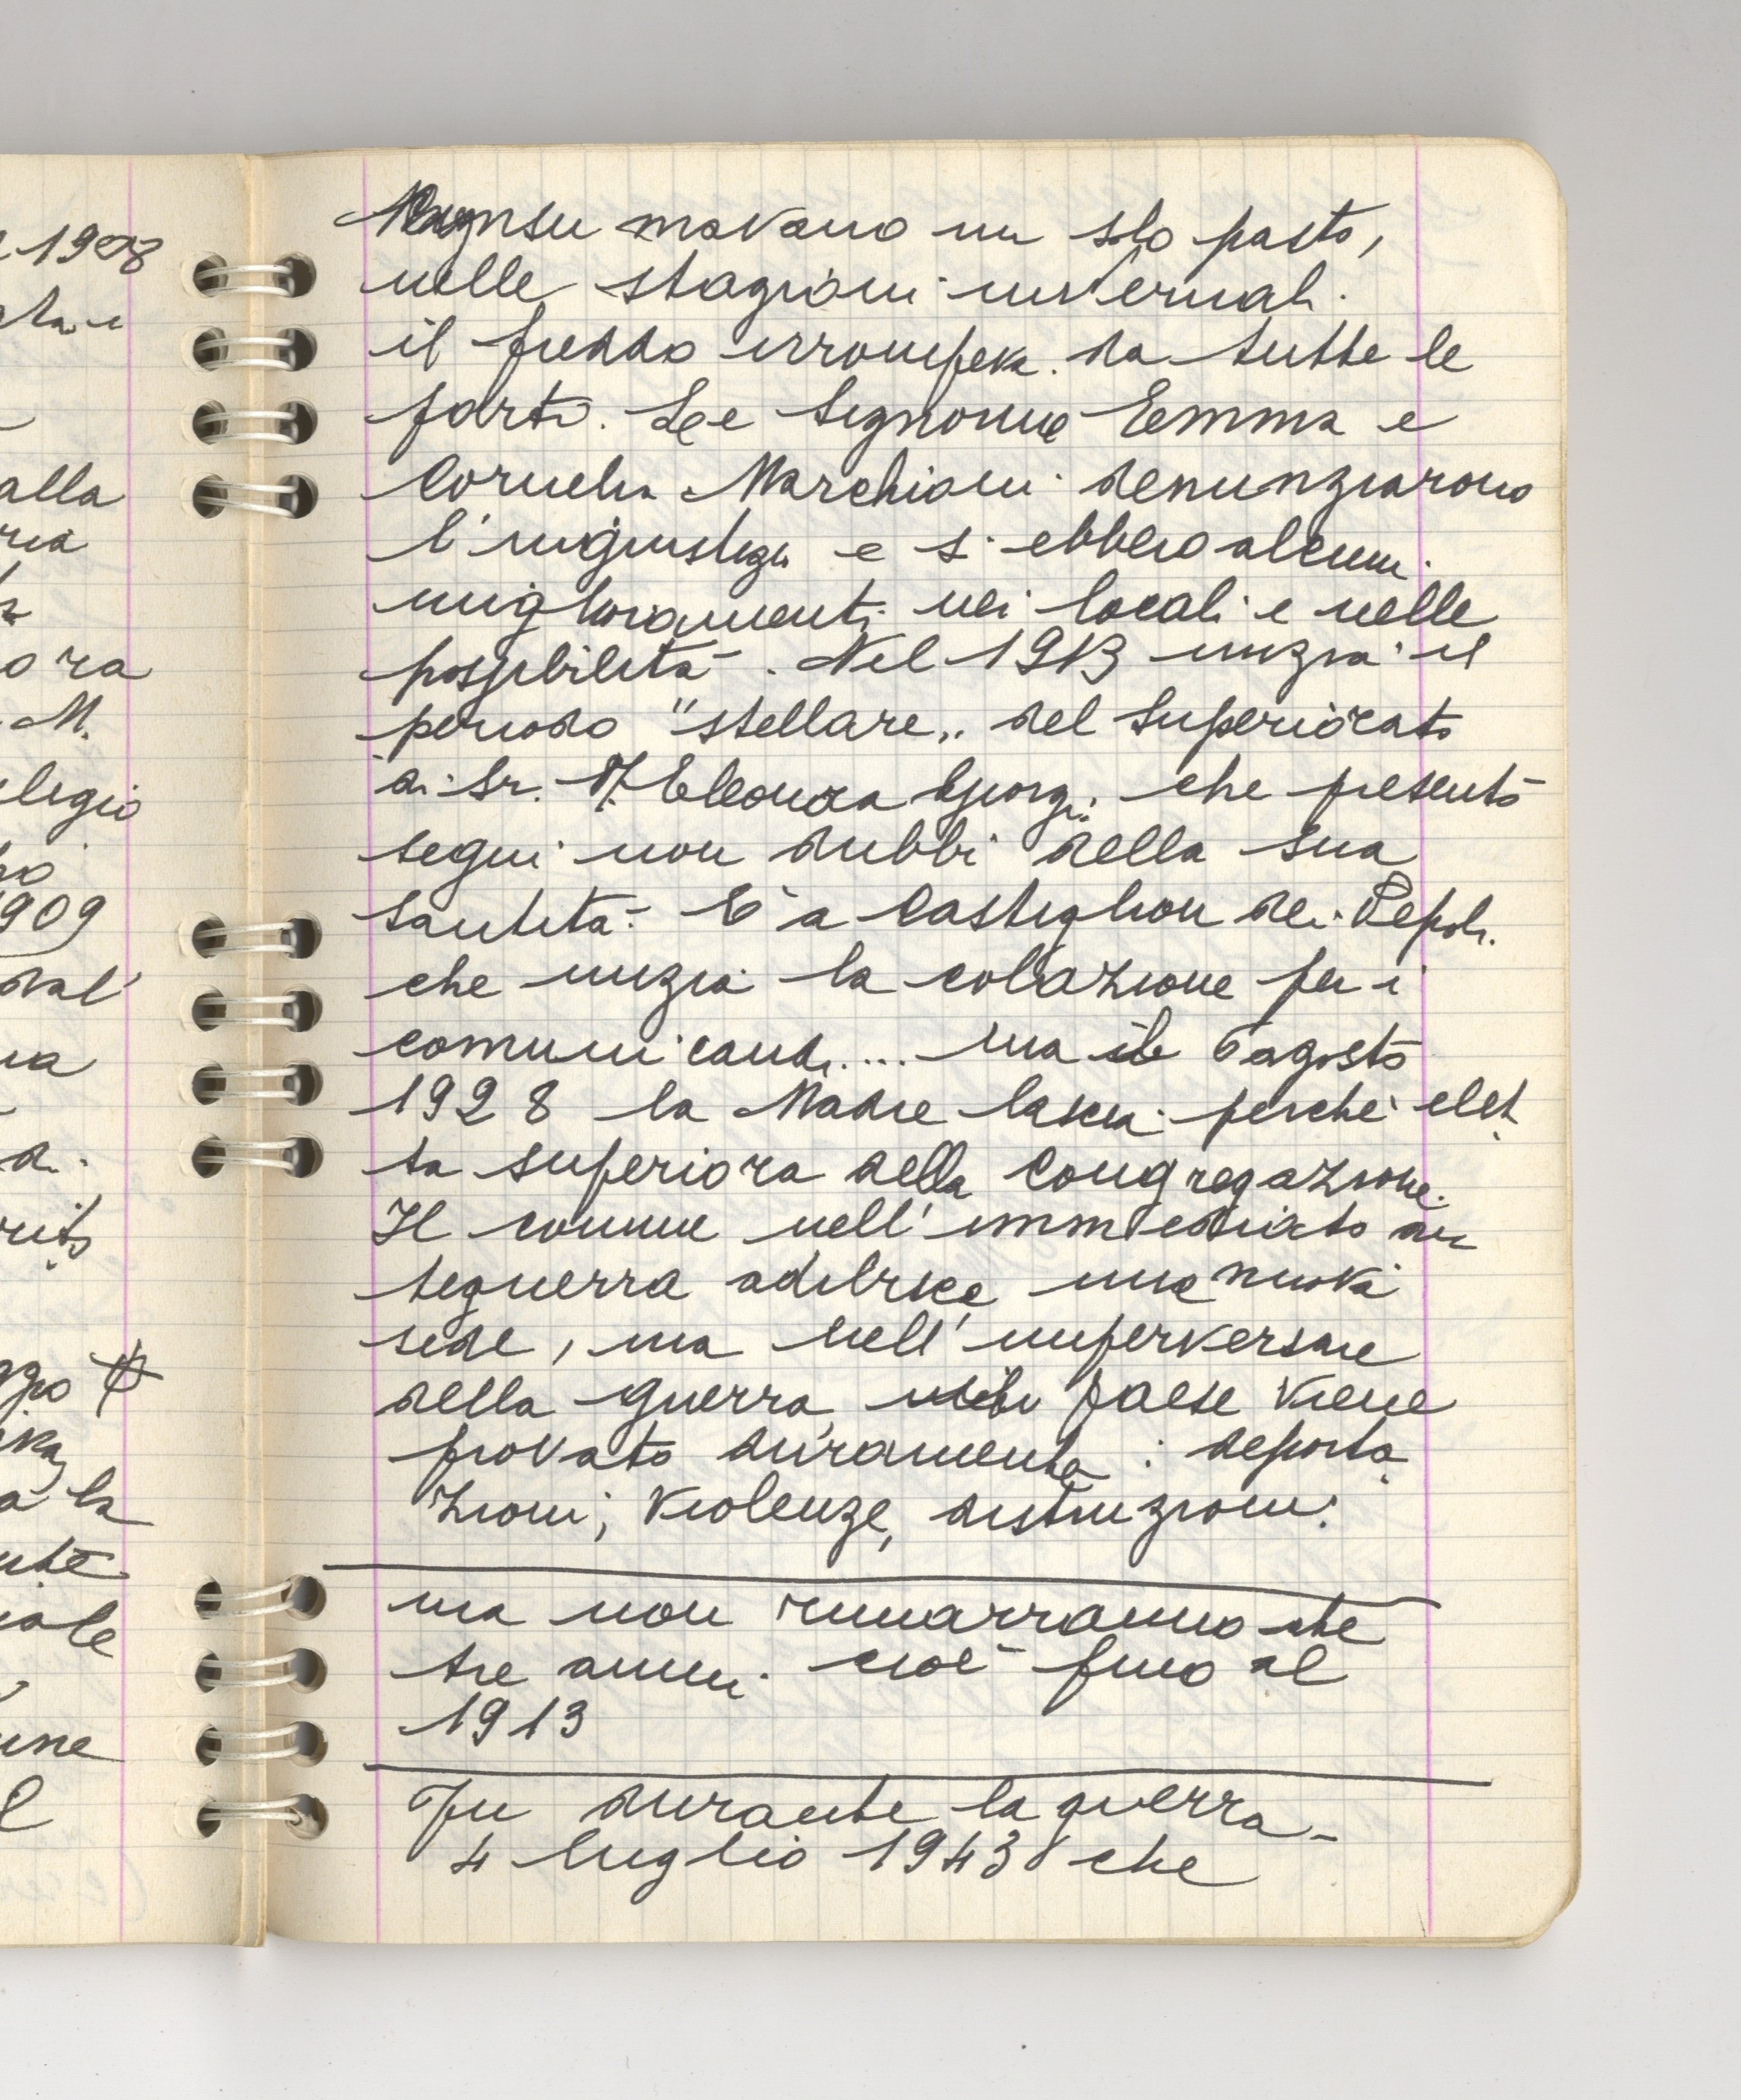 1908
alla
ria
ora
M.
legio
909
dal'
ma
la
iale
une
mavano un solo pasto,
nelle stagioni invernali.
il freddo irrompeva da tutte le
parti. Le Signorine Emma e
Cornelia Marchioni denunziarono
l'ingiustizia e si ebbero alcuni
miglioramenti nei locali e nelle
possibilità. Nel 1913 inizia il
periodo "stellare" del Superiorato
di Sr. M. Eleonora Giorgi, che presentò
segni non dubbi della sua
santità. È a Castiglion dei Pepoli
che inizia la colazione per i
comunicandi.... ma il 6 agosto
1928 la Madre lascia perchè elet
ta superiora della Congregazione.
Il comune nell'immediato an
teguerra adibisce una nuova
sede, ma nell'imperversare
della guerra il paese viene
provato duramente: deporta
zioni, violenze, distruzioni.
ma non rimarranno che
tre anni cioè fino al
1913
Fu durante la guerra -
4 luglio 1943 che